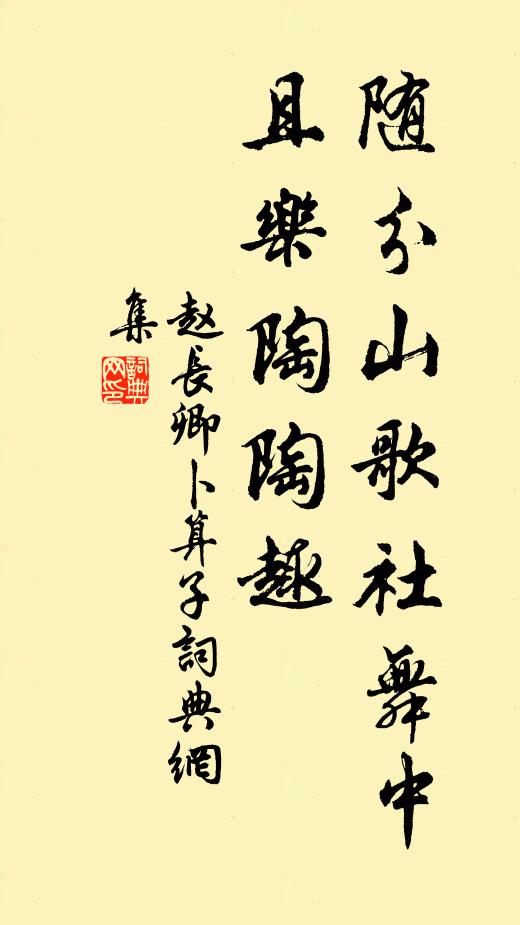 随分山歌社舞中
且樂陶陶趣
赵長卿卜算子詞典網
集
詞典
网印